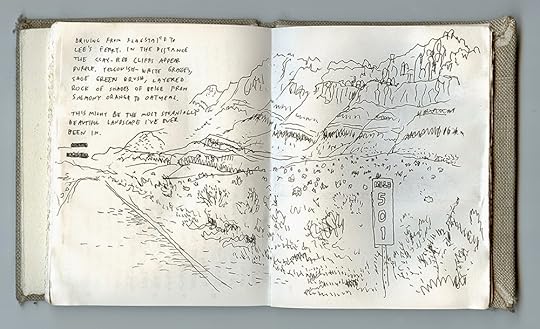 DRIVING FROM FLAGSTAFF TO
LEE'S FERRY. IN THE DISTANCE
THE CLAY-RED CLIFFS APPEAR
PURPLE, YELLOWISH-WHITE GRASSES,
SAGE GREEN BRUSH, LAYERED
ROCK OF SHADES OF BEIGE FROM
ORANGE TO OATMEAL.
THIS MIGHT BE THE MOST STRANGELY
BEAUTIFUL LANDSCAPE I'VE EVER
BEEN IN.
MILE
501